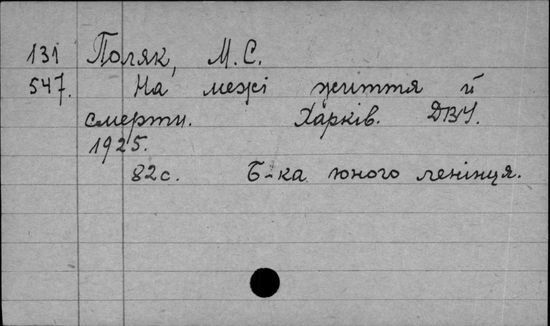 131 Поляк, М. С.
547. На межі життя й
смерти. Харків. ДВУ.
1925.
82с. Б-ка юного ленінця.